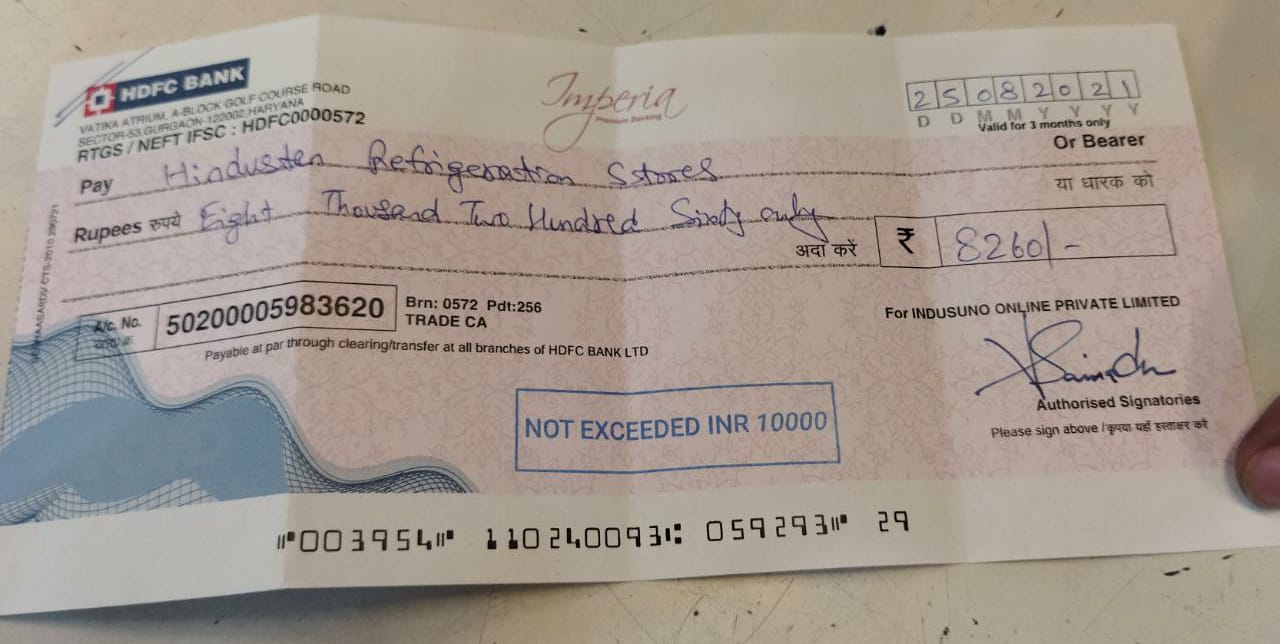 HDFC BANK
VATIKA ATRIUM, A-BLOCK GOLF COURSE ROAD
SECTOR-53, GURGAON-122002, HARYANA
RTGS / NEFT IFSC : HDFC0000572
Imperia
Premium Banking
25082021
D D M M Y Y Y Y
Valid for 3 months only
Pay Hindusten Refrigeration Sstores Or Bearer
या धारक को
Rupees रुपये Eight Thousand Two Hundred Sixty only
अदा करें ₹ 8260/-
A/c. No. 50200005983620 Brn: 0572 Pdt:256
TRADE CA
Payable at par through clearing/transfer at all branches of HDFC BANK LTD
For INDUSUNO ONLINE PRIVATE LIMITED
NOT EXCEEDED INR 10000
Authorised Signatories
Please sign above / कृपया यहाँ हस्ताक्षर करें
⑈003954⑈ 110240093⑆ 059293⑈ 29